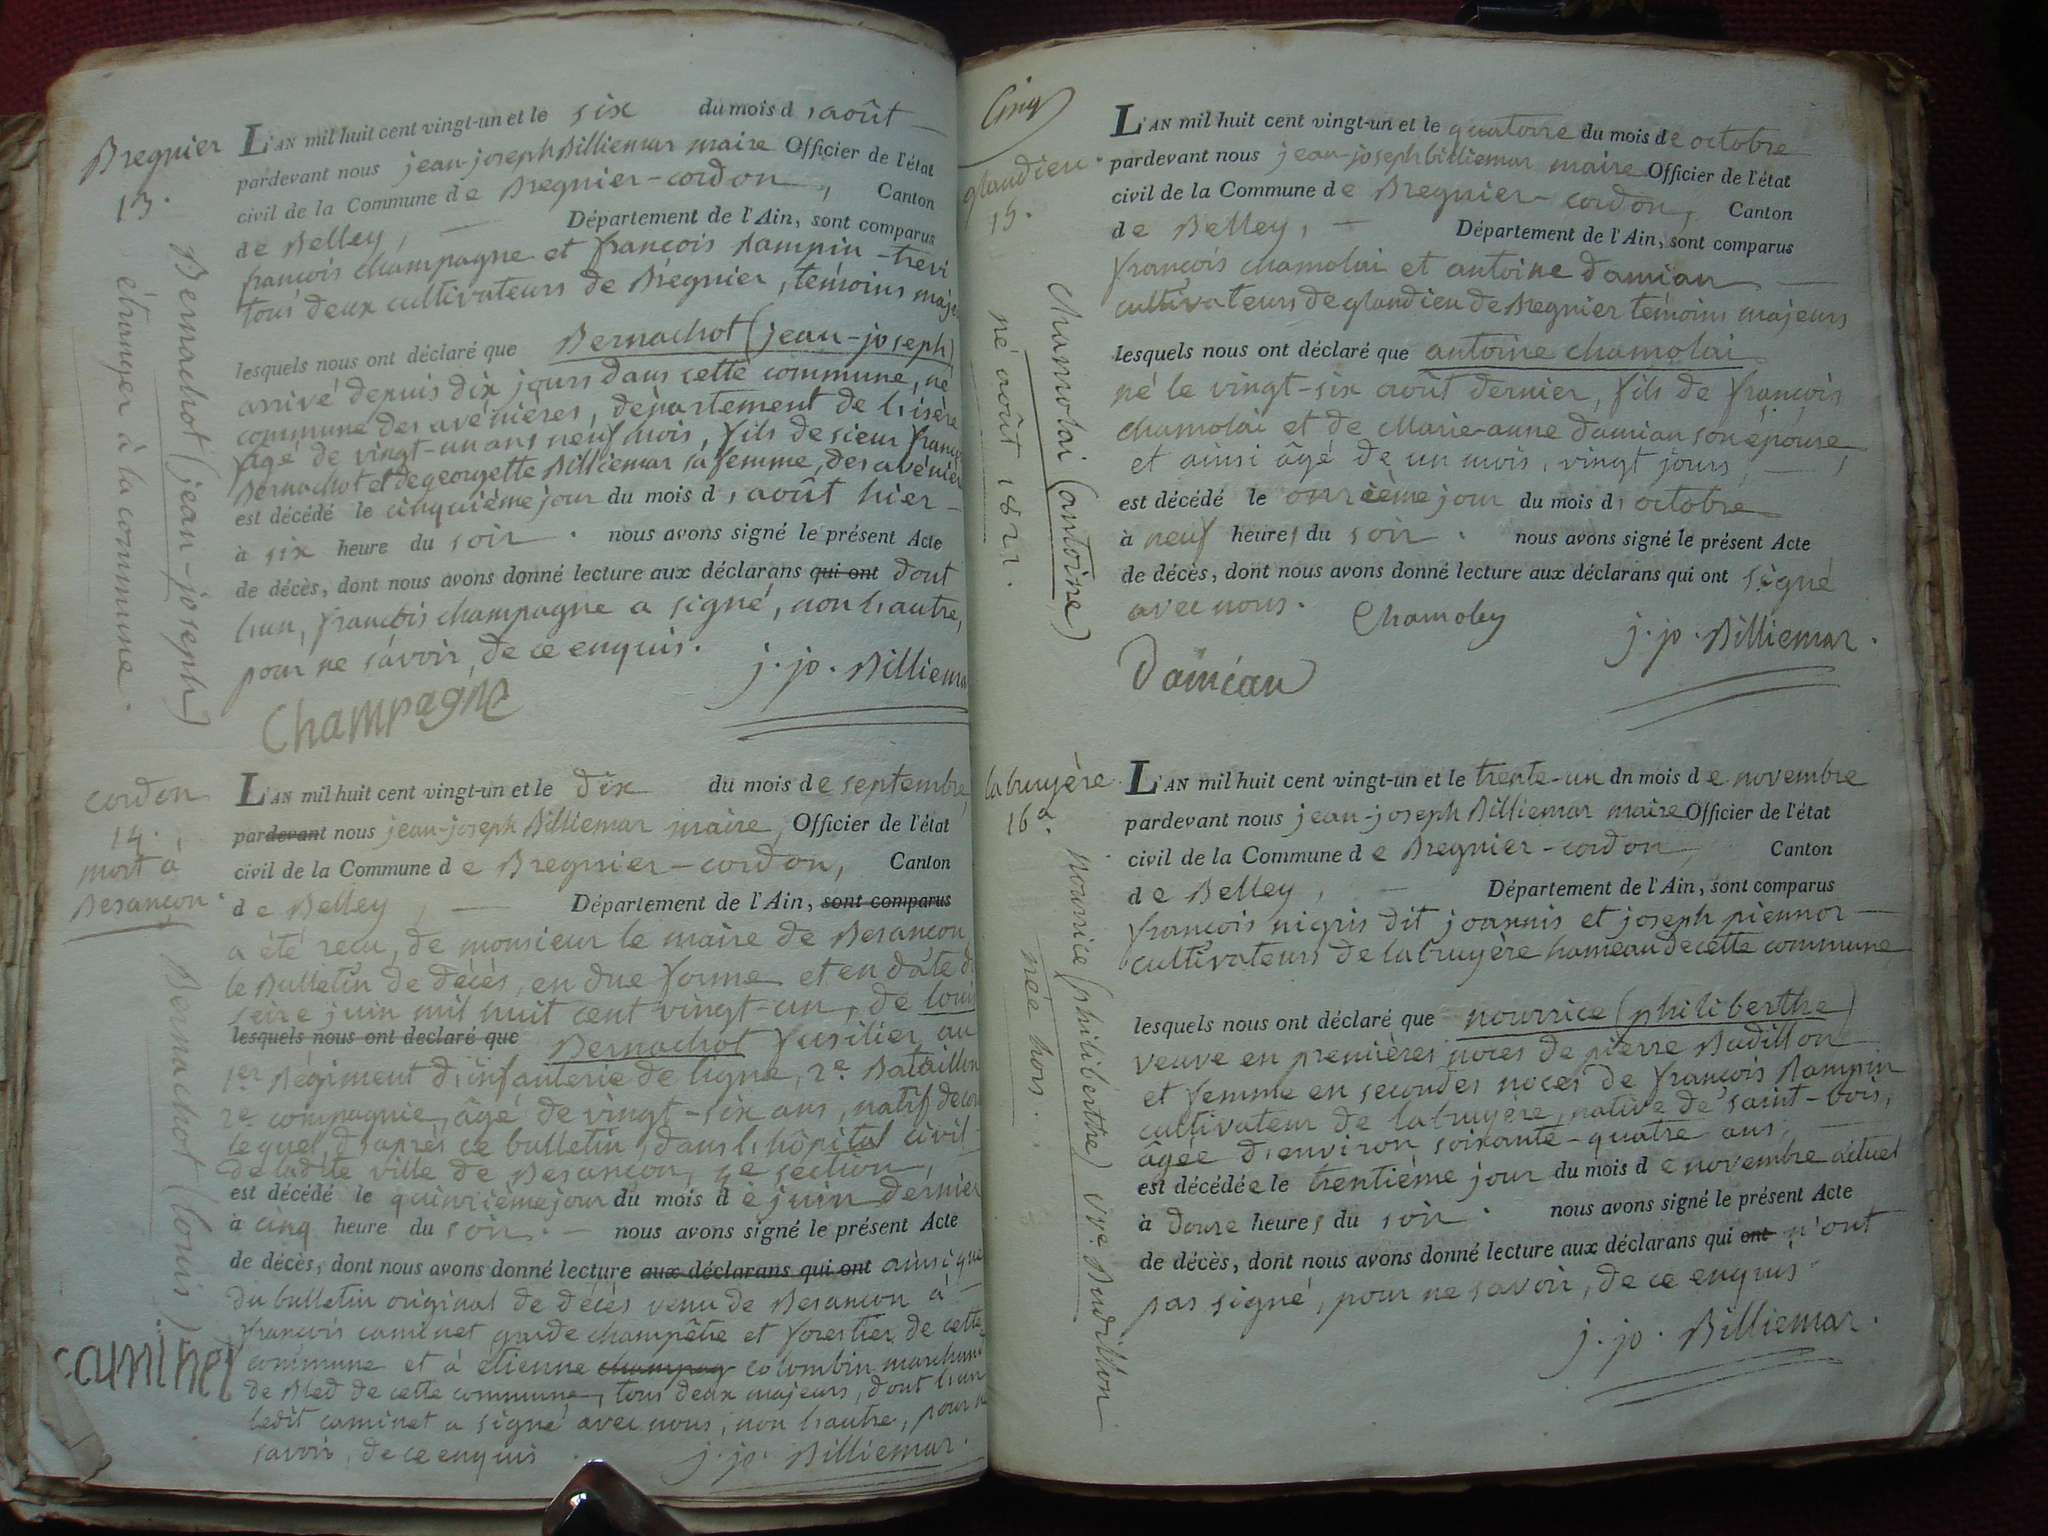 Bregnier
13.
Bernachot (jean-joseph)
étranger à la commune.
L'AN mil huit cent vingt-un et le six du mois d'août
pardevant nous jean-joseph Billiemar maire Officier de l'état
civil de la Commune de Bregnier-cordon, Canton
de Belley, Département de l'Ain, sont comparus
françois champagne et françois Rampin-trevi
tous deux cultivateurs de Bregnier, témoins maje
lesquels nous ont déclaré que Bernachot (jean-joseph)
arrivé depuis dix jours dans cette commune, né
commune des avénières, département de l'isère
âgé de vingt-un ans neuf mois, fils de sieur franç
Bernachot et de georgette Billiemar sa femme, des avéniè
est décédé le cinquième jour du mois d'août hier
à six heure du soir. nous avons signé le présent Acte
de décès, dont nous avons donné lecture aux déclarans qui ont dont
l'un, françois champagne a signé, non l'autre,
pour ne savoir, de ce enquis. j. jo. Billiema
Champagne
cordon
14.
mort à
Besançon
Bernachot (louis)
L'AN mil huit cent vingt-un et le dix du mois de septembre,
pardevant nous jean-joseph Billiemar maire Officier de l'état
civil de la Commune de Bregnier-cordon, Canton
de Belley, Département de l'Ain, sont comparus
a été reçu, de monsieur le maire de Besançon
le Bulletin de décès, en due forme et en date d
seize juin mil huit cent vingt-un, de louis
lesquels nous ont déclaré que Bernachot fusilier au
1er Régiment d'infanterie de ligne, 2e Bataillon
2e compagnie, âgé de vingt-six ans, natif de cor
lequel, d'après ce bulletin, dans l'hôpital civil
de ladite ville de Besançon, section,
est décédé le quinzième jour du mois de juin dernier
à cinq heure du soir. nous avons signé le présent Acte
de décès, dont nous avons donné lecture aux déclarans qui ont ainsi que
du bulletin original de décès venu de Besançon à
françois caminet garde champêtre et forestier de cette
commune et à étienne champag colombin marchand
de Bled de cette commune, tous deux majeurs, dont l'un
ledit caminet a signé avec nous, non l'autre, pour n
savoir, de ce enquis. j. jo. Billiemar.
caminet
Cinq
glandieu
15.
chamolai (antoine)
né août 1821.
L'AN mil huit cent vingt-un et le quatorze du mois de octobre
pardevant nous jean-joseph billiemar maire Officier de l'état
civil de la Commune de Bregnier-cordon, Canton
de Belley, Département de l'Ain, sont comparus
françois chamolai et antoine damian
cultivateurs de glandieu de Bregnier témoins majeurs
lesquels nous ont déclaré que antoine chamolai
né le vingt-six août dernier, fils de françois
chamolai et de Marie-anne damian son épouse,
et ainsi âgé de un mois, vingt jours,
est décédé le onzième jour du mois d'octobre
à neuf heures du soir. nous avons signé le présent Acte
de décès, dont nous avons donné lecture aux déclarans qui ont signé
avec nous. Chamoley j. jo. Billiemar.
Damian
labruyère
16e.
nourrice (philiberthe) vve. Budillon
née hors.
L'AN mil huit cent vingt-un et le trente-un dn mois de novembre
pardevant nous jean-joseph Billiemar maire Officier de l'état
civil de la Commune de Bregnier-cordon, Canton
de Belley, Département de l'Ain, sont comparus
françois nigris dit joannis et joseph piennor
cultivateurs de labruyère hameau de cette commune
lesquels nous ont déclaré que nourrice (philiberthe)
veuve en premières noces de pierre Budillon
et femme en secondes noces de françois Rampin
cultivateur de labruyère, native de saint-bois,
âgée d'environ soixante-quatre ans,
est décédée le trentième jour du mois de novembre actuel
à douze heures du soir. nous avons signé le présent Acte
de décès, dont nous avons donné lecture aux déclarans qui ont n'ont
pas signé, pour ne savoir, de ce enquis.
j. jo. Billiemar.